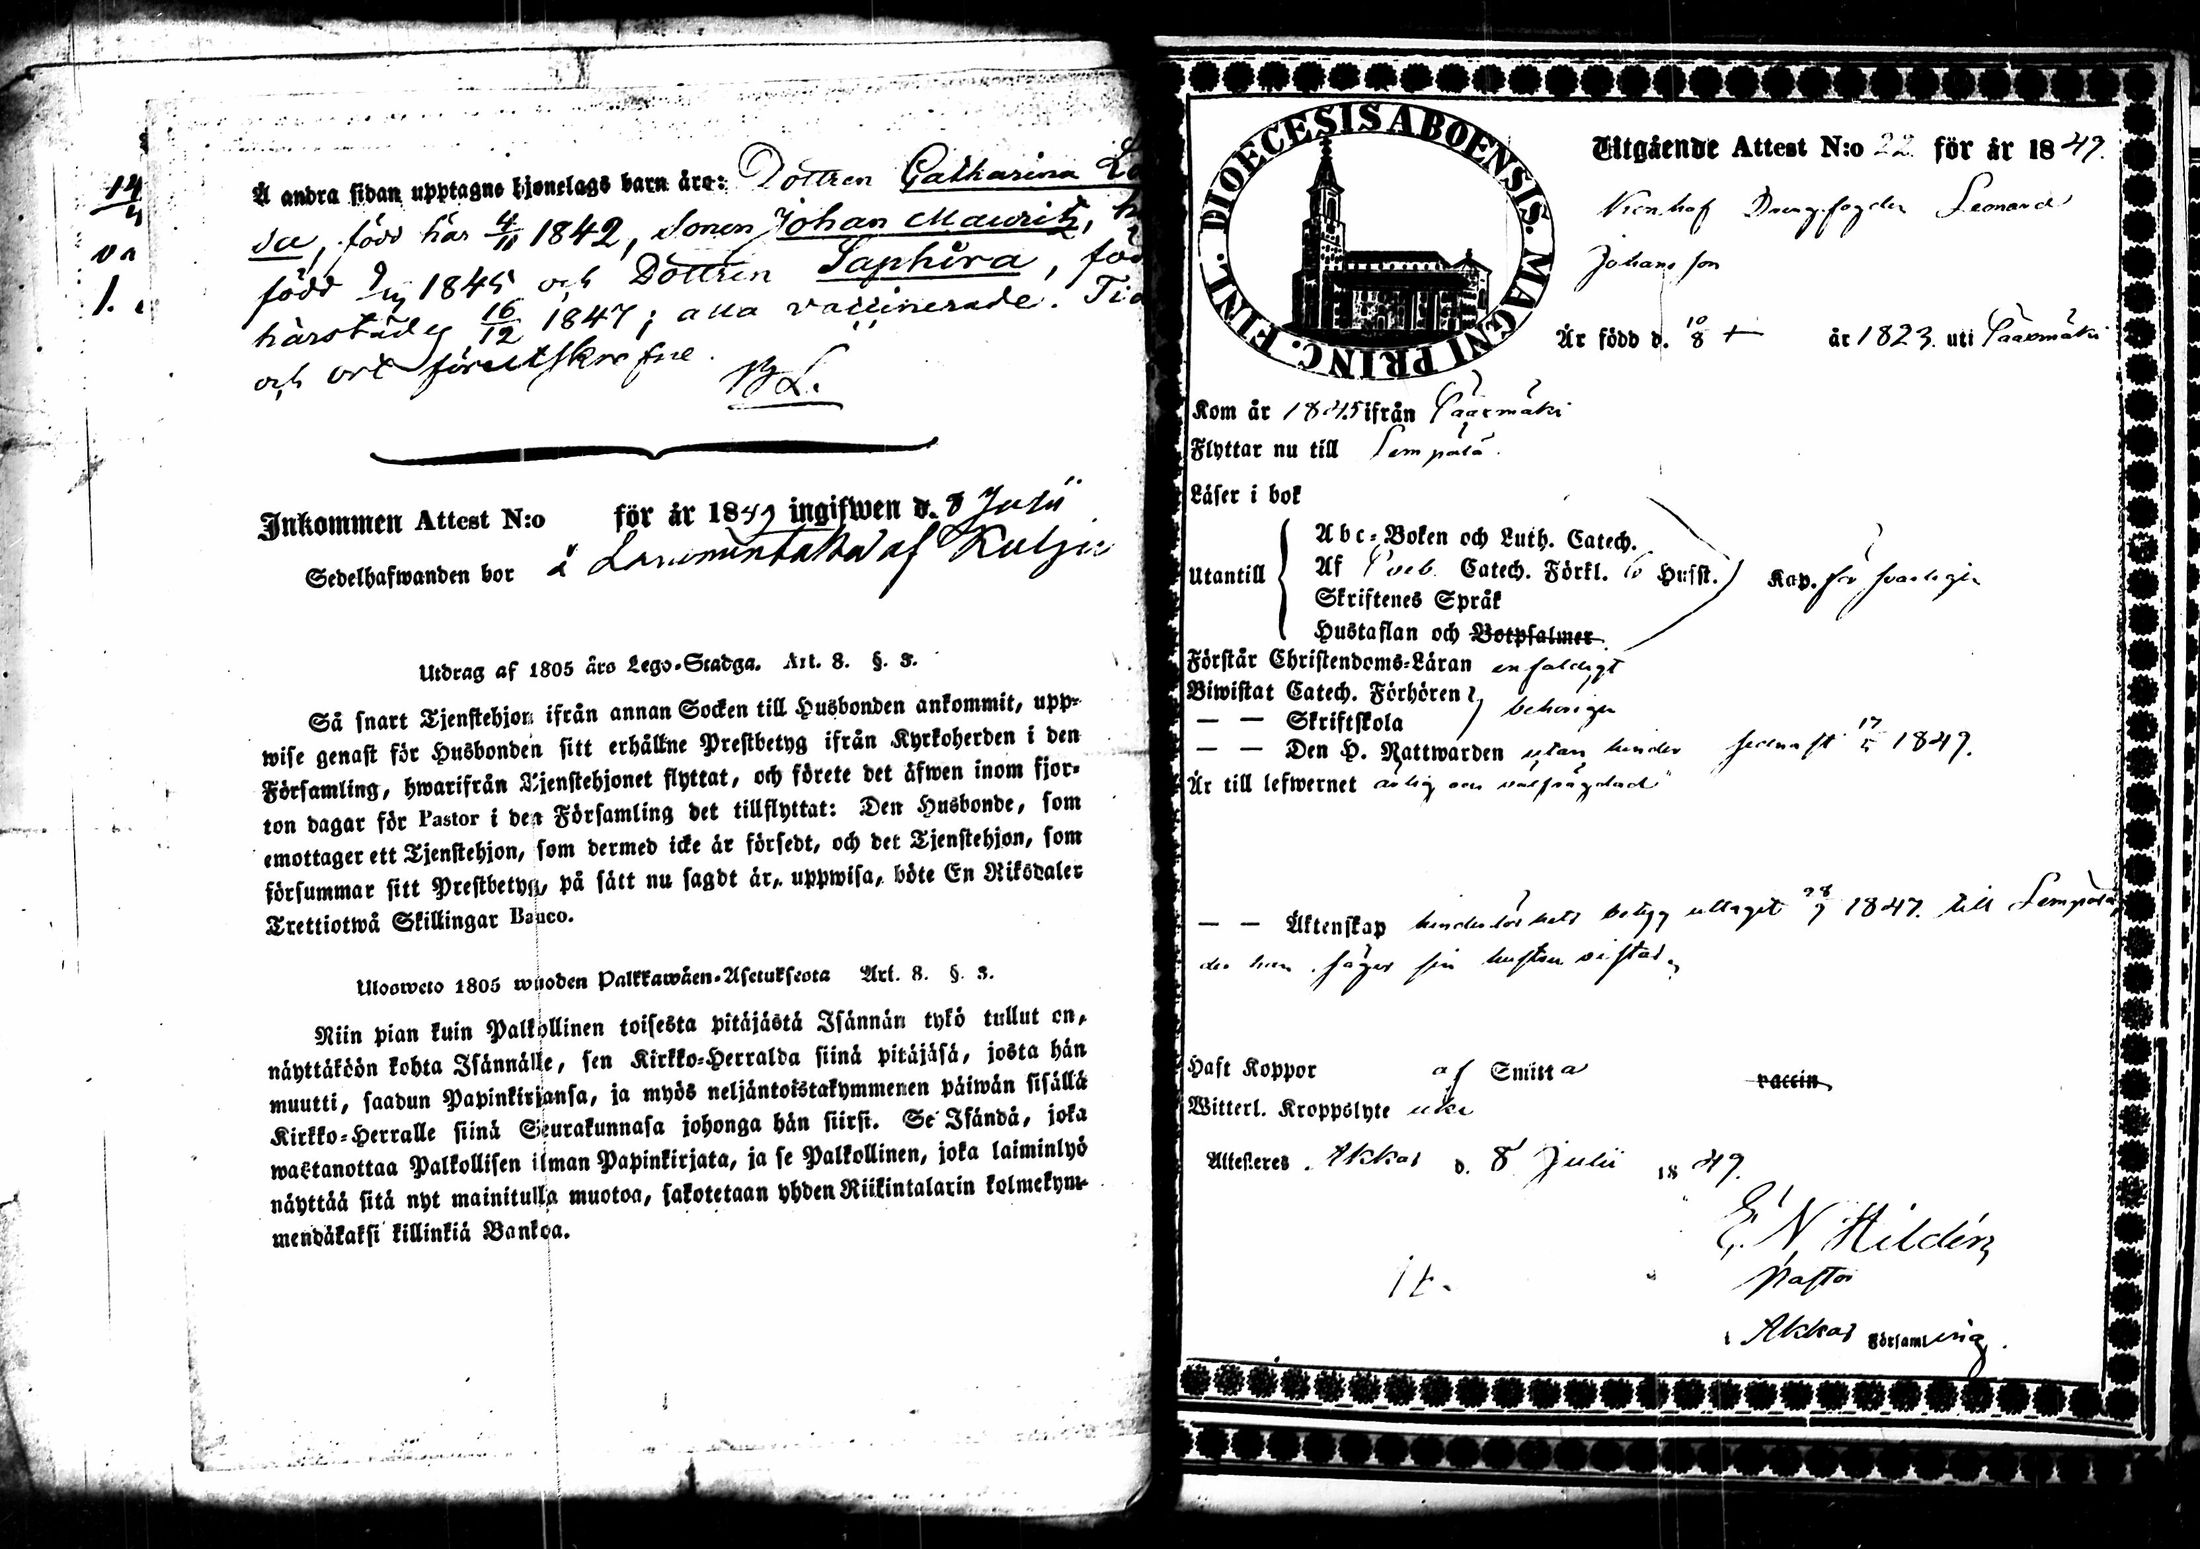 14
Å andra sidan upptagne hjonelags barn äro: Dottren Catharina
född här 4/11 1842, Sonen Johan Mauritz,
född 1845 och Dottren Saphira,
härstädes 16/12 1847; alla vaccinerade.
och ort förutskrefne.
Inkommen Attest N:o för år 1849 ingifwen d. 8 Julii
Sedelhafwanden bor å af
Utdrag af 1805 års Lego-Stadga. Art. 8. §. 3.
Så snart Tjenstehjon ifrån annan Socken till Husbonden ankommit, upp-
wise genast för Husbonden sitt erhållne Prestbetyg ifrån Kyrkoherden i den
Församling, hwarifrån Tjenstehjonet flyttat, och förete det äfwen inom fjor-
ton dagar för Pastor i den Församling det tillflyttat: Den Husbonde, som
emottager ett Tjenstehjon, som dermed icke är försedt, och det Tjenstehjon, som
försummar sitt Prestbetyg, på sätt nu sagdt är, uppwisa, böte En Riksdaler
Trettiotwå Skillingar Banco.
Uloswето 1805 wuoden Palkkawäen-Asetuksesta Art. 8. §. 3.
Niin pian kuin Palkollinen toisesta pitäjästä Isännän tykö tullut on,
näyttäköön kohta Isännälle, sen Kirkko-Herralda siinä pitäjäsä, josta hän
muutti, saadun Papinkirjansa, ja myös neljäntoistakymmenen päiwän sisällä
Kirkko-Herralle siinä Seurakunnasa johonga hän siirsi. Se Isändä, joka
wastanottaa Palkollisen ilman Papinkirjata, ja se Palkollinen, joka laiminlyö
näyttää sitä nyt mainitulla muotoa, sakotetaan yhden Riikintalarin kolmekym-
mendäkaksi killinkiä Bankoa.
DIOECESIS ABOENSIS. MAGNI PRINC. FINL.
Utgående Attest N:o 22 för år 1849.
Leonard
Johansson
Är född d. 10/8 år 1823. uti Sääxmäki
Kom år 1845 ifrån Sääxmäki
Flyttar nu till Lempälä.
Läser i bok
Abc-Boken och Luth. Catech.
Utantill Af Catech. Förkl. Husst. Kap. försvarligen
Skriftenes Språk
Hustaflan och Botpsalmer
Förstår Christendoms-Läran enfaldigt
Biwistat Catech. Förhören
— — Skriftskola behörigen
— — Den H. Nattwarden utan hinder senast 17/5 1849.
Är till lefwernet ärlig och välfrägdad
— — Äktenskap hinderlöshets betyg uttaget 28/9 1847. till Lempälä,
der han säges sin hustru
Haft Koppor af Smitta vaccin
Witterl. Kroppslyte icke
Attesteres Akkas d. 8 Julii 1849.
E. N. Hildén
Pastor
i Akkas Församling.